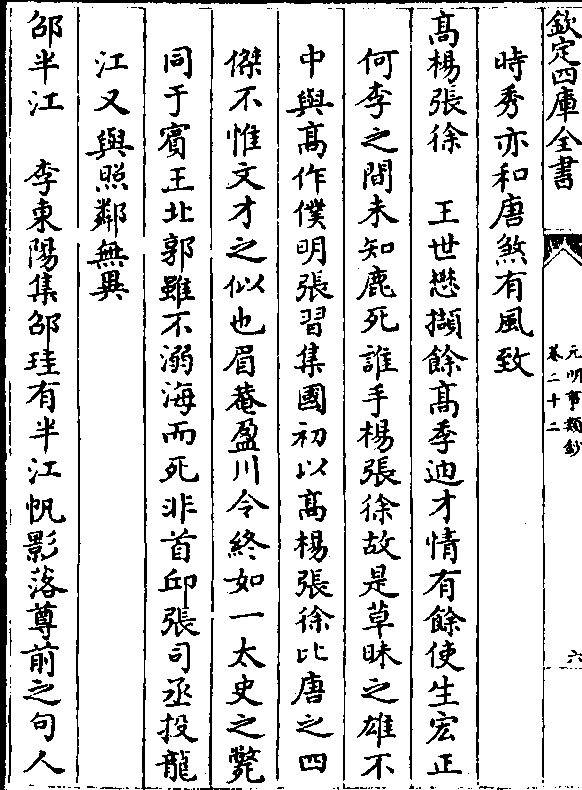 欽定四庫全書
元明事類鈔
卷二十二
六
時秀亦和唐煞有風致
高楊張徐　王世懋擷餘高季迪才情有餘使生宏正
何李之間未知鹿死誰手楊張徐故是草昧之雄不
中與高作僕明張習集國初以高楊張徐比唐之四
傑不惟文才之似也眉菴盈川令終如一太史之斃
同于賓王北郭雖不溺海而死非首邱張司丞投龍
江又與照鄰無異
邵半江　李東陽集邵珪有半江帆影落尊前之句人